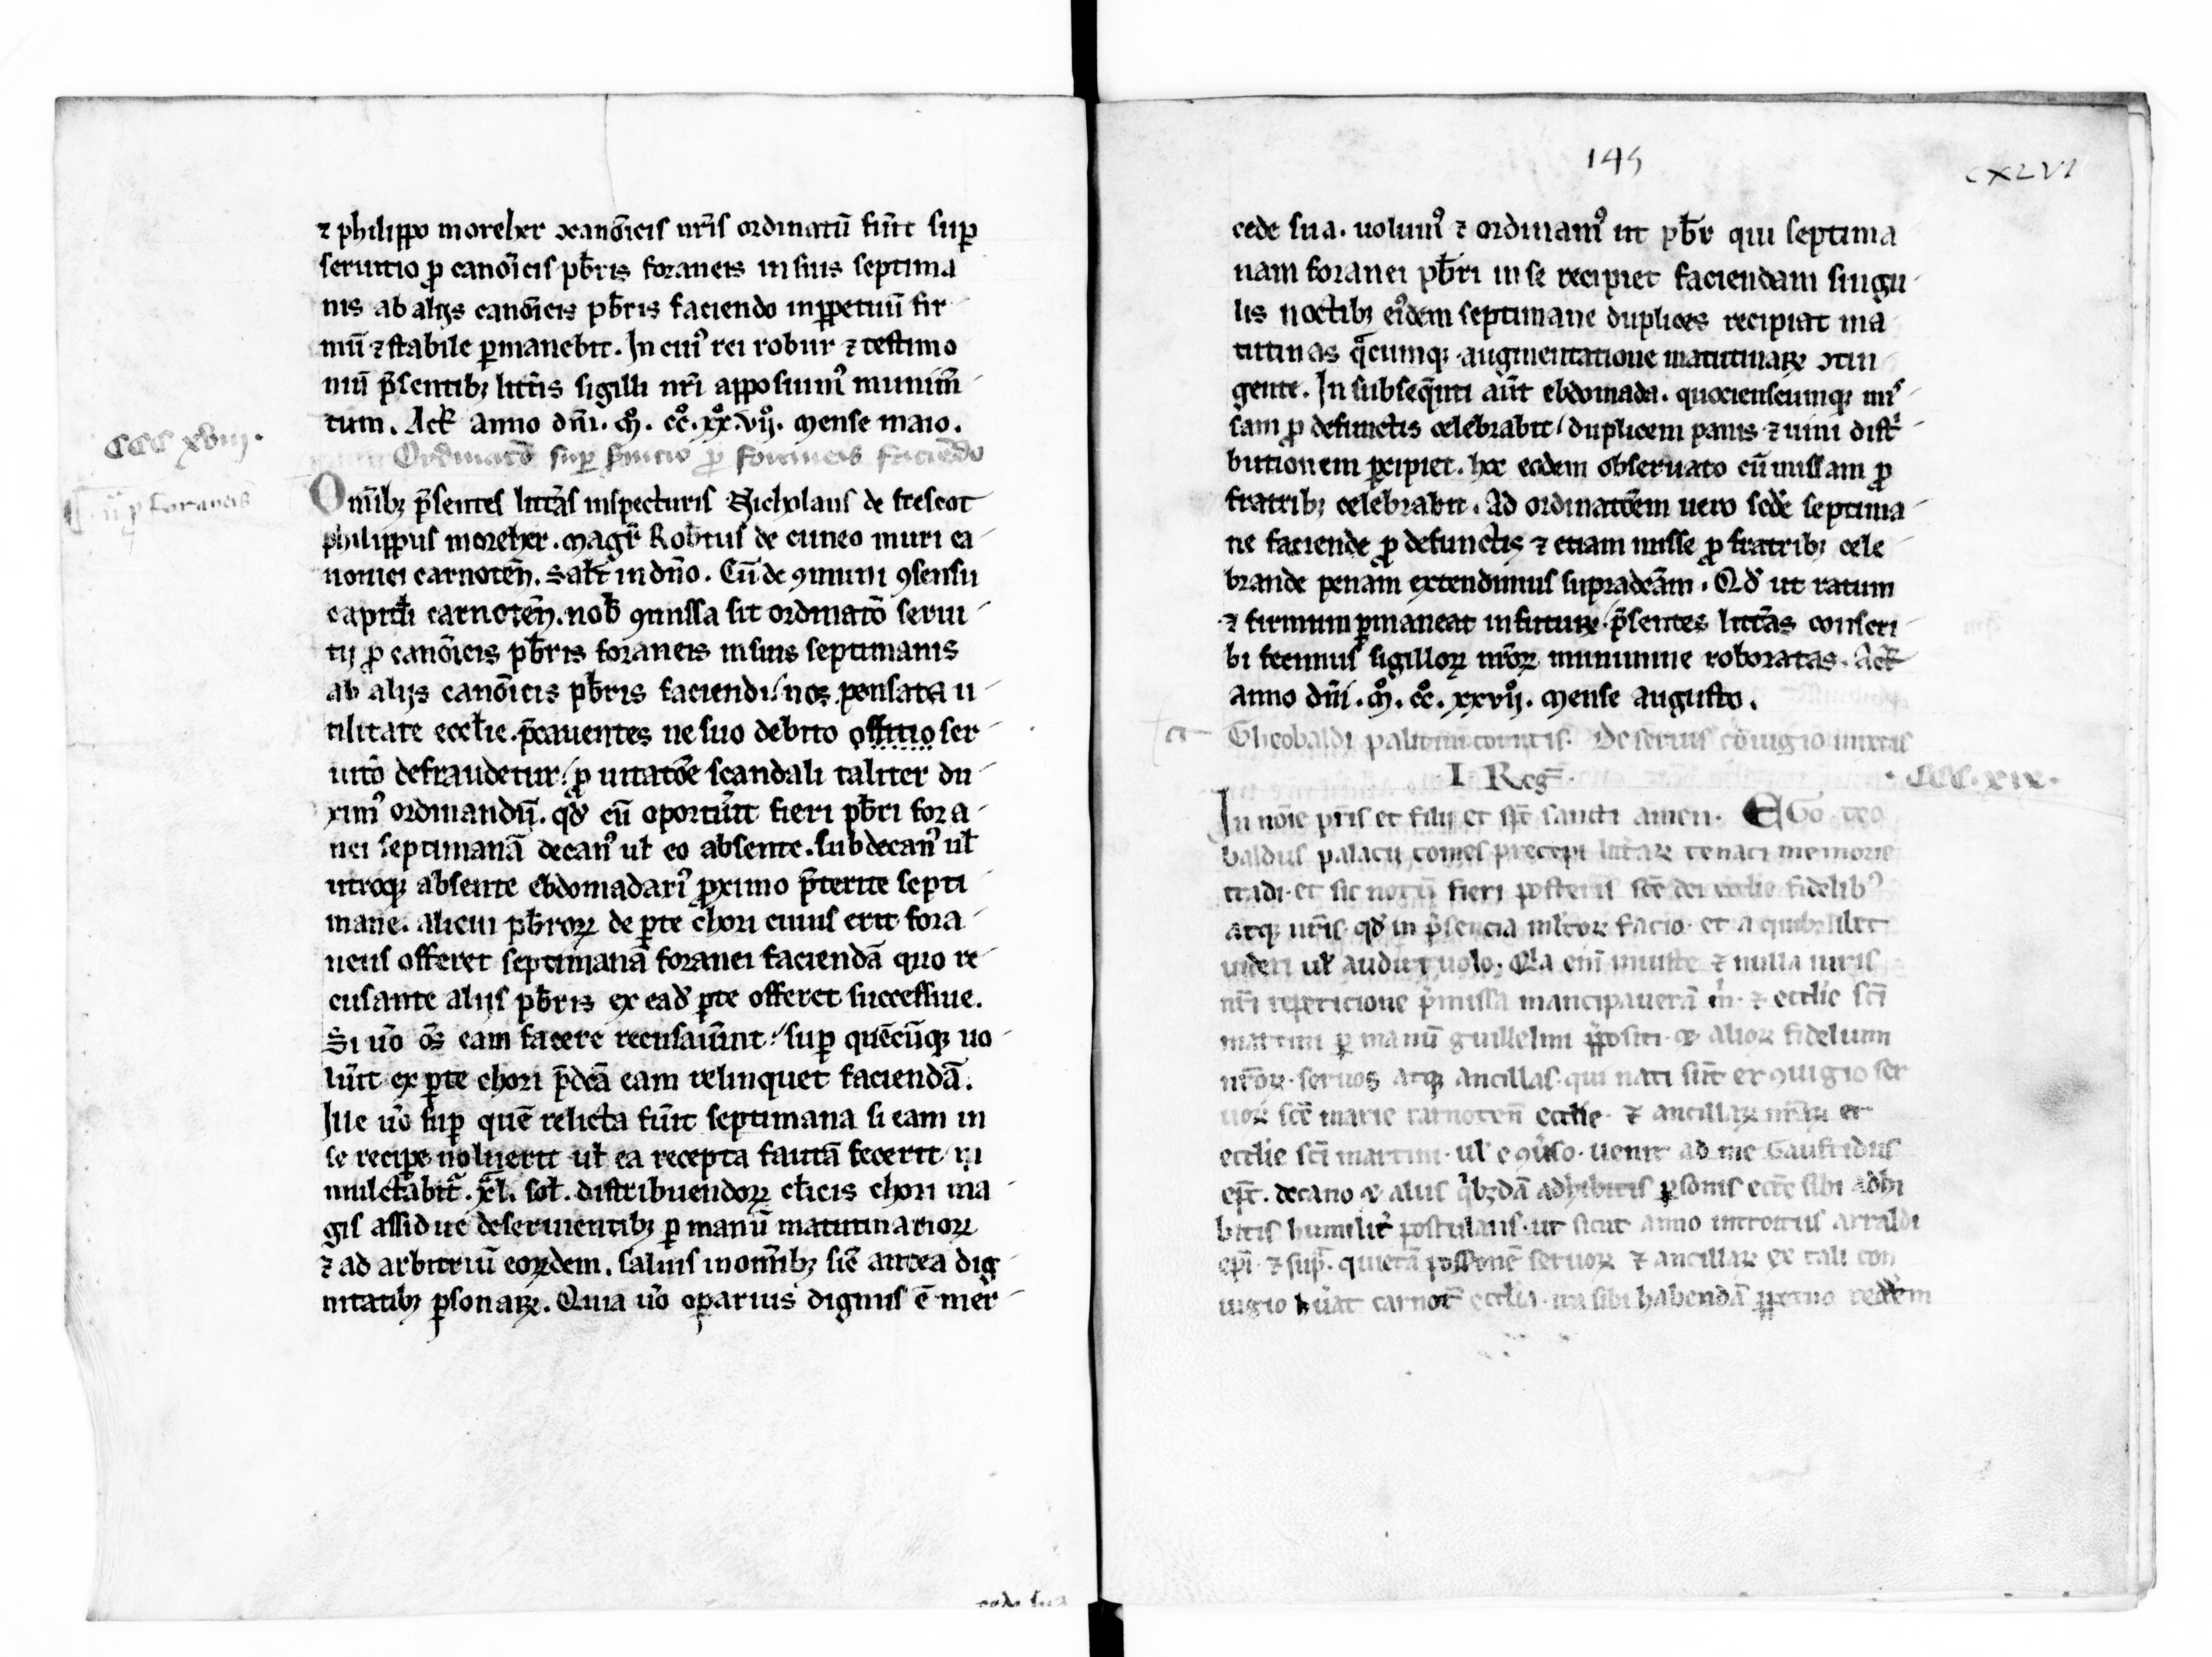 ⁊ philippo moreher ↄcanōicis nr̄is ordinatū fūit sup̱
seruitio ꝓ canōicis pb̄ris foraneis in suis septima
nis ab alijs canōicis pb̄ris faciendo inꝑpetuū fir
mū ⁊ stabile ꝑmanebit. In cui᷒ rei robur ⁊ testimo
niū p̄sentibꝫ litt̄is sigilli nr̄i apposuim᷒ munim̄
tum. Act̄ anno dn̄i. m̊. cc̊. xx̊. vij̊. mense maio.
CCC xviij.
Ordinatō sup̱ seruitio ꝓ foraneis faciēdo
ꝓ foraneis
Omībꝫ p̄sentes litt̄as inspecturis Nicholaus de frescot
philippus moreher. magr̄ Rob̄tus de cuneo muri ca
nonici carnoteñ. sal̄t in dn̄o. Cū de ꝯmuni ꝯsensu
capitl̄i carnoteñ. nob̄ ꝯmissa sit ordinatō serui
tij ꝓ canōicis pb̄ris foraneis in suis septimanis
ab alijs canōicis pb̄ris faciendi. nos pensata u
tilitate eccl̄ie. p̄cauentes ne suo debito offitio ser
uitō defraudetur. ꝓ uitatōe scandali taliter du
xim᷒ ordinandū. qd̄ cū oportūit fieri pb̄ri fora
nei septimanā decan᷒ ul̄ eo absente. subdecan᷒ ul̄
utroqꝫ absente ebdomadari᷒ ꝓximo p̄terite septi
mane. alicui pb̄roꝝ de ꝑte chori cuius erit fora
neus offeret septimanā foranei faciendā quo re
cusante alijs pb̄ris ex ead̄ ꝑte offeret successiue.
Si ūo ōs eam facere recusaūint. sup̱ quēcūqꝫ uo
lūit ex ꝑte chori p̄dc̄ā eam relinquet faciendā.
Ille ūo sup̱ quē relicta fūit septimana si eam in
se reciꝑe noluerit ul̄ ea recepta fautā fecerit in
mulctabit᷑. xl. sol̄. distribuendoꝝ cl̄icis chori ma
gis assidue deseruientibꝫ ꝑ manū matutinarioꝝ
⁊ ad arbitriū eoꝝdem. saluis in omībꝫ sic̄ antea dig
nitatibꝫ ꝑsonaꝝ. Quia ūo oꝑarius dignus ē mer
cede sua
145
CXLVI
cede sua. uolum᷒ ⁊ ordinam᷒ ut pb̄r qui septima
nam foranei pb̄ri in se recipiet faciendam singu
lis noctibꝫ ei᷒dem septimane duplices recipiat ma
tutinas q̄cumqꝫ augmentatione matutinaꝝ ↄtin
gente. In subseq̄nti aūt ebdomada. quocienscumqꝫ mis
sam ꝓ defunctis celebrabit duplicem panis ⁊ uini distⁱ
butionem ꝑcipiet. hoc eodem obseruato cū missam ꝓ
fratribꝫ celebrabit. Ad ordinatōem uero scd̄e septima
ne faciende ꝓ defunctis ⁊ etiam misse ꝓ fratribꝫ cele
brande penam extendimus supradc̄am. Qd̄ ut ratum
⁊ firmum ꝑmaneat in futuꝝ. p̄sentes litt̄as conscri
bi fecimus sigilloꝝ nr̄oꝝ munimine roboratas. Act̄
anno dn̄i. m̊. cc̊. xxvij̊. mense augusto.
Theobaldi palatini comitis. De seruis cōiugio iunctis
I Reḡ.
CCC.xix.
In noīe pr̄is et filij et sp̄c sancti amen. EGo teo
baldus palacij comes precepi litt̄aꝝ tenaci memorie
tradi. et sic notū fieri posteris sc̄e dei eccl̄ie fidelib᷒
atqꝫ nr̄is. qd̄ in p̄sencia multoꝝ facio. et a quibꝫlibet
uideri ul̄ audiri uolo. Qia eni iniuste ⁊ nulla iuris
nr̄i repeticione p̄missa mancipauerā m̄. ⁊ eccl̄ie sc̄i
martini ꝑ manū guillelmi p̄positi. & alioꝝ fidelium
nr̄oꝝ. seruos atqꝫ ancillas. qui nati sūt ex ꝯiugio ser
uoꝝ sc̄e marie carnoteñ eccl̄ie. ⁊ ancillaꝝ nr̄aꝝ et
eccl̄ie sc̄i martini. ul̄ e ꝯuˢo. uenit ad me Gaufridus
ep̄c. decano & alijs qⁱbꝫdā adhibitis ꝑsonis eccl̄e sibi adhi
bitis humilit̄ postulans. ut sicut anno introitus arraldi
ep̄i. ⁊ sup̄. quietā possonē seruoꝝ ⁊ ancillaꝝ ex tali con
iugio h̄uāt carnot̄ eccl̄ia. ita sibi habendā ꝑpetuo redd̄em